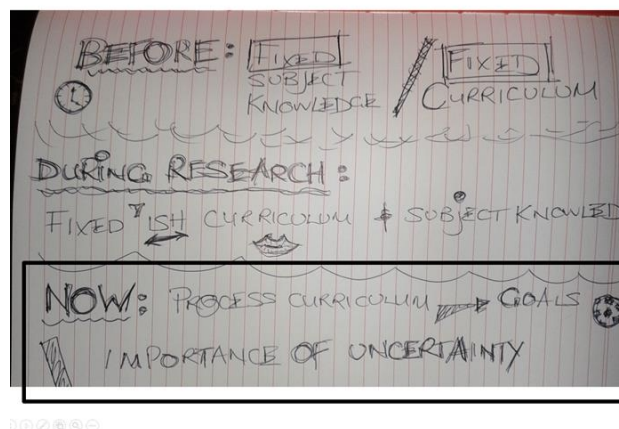 BEFORE: FIXED SUBJECT KNOWLEDGE / FIXED CURRICULUM
DURING RESEARCH:
FIXED "ISH CURRICULUM & SUBJECT KNOWLED
NOW: PROCESS CURRICULUM → GOALS
IMPORTANCE OF UNCERTAINTY